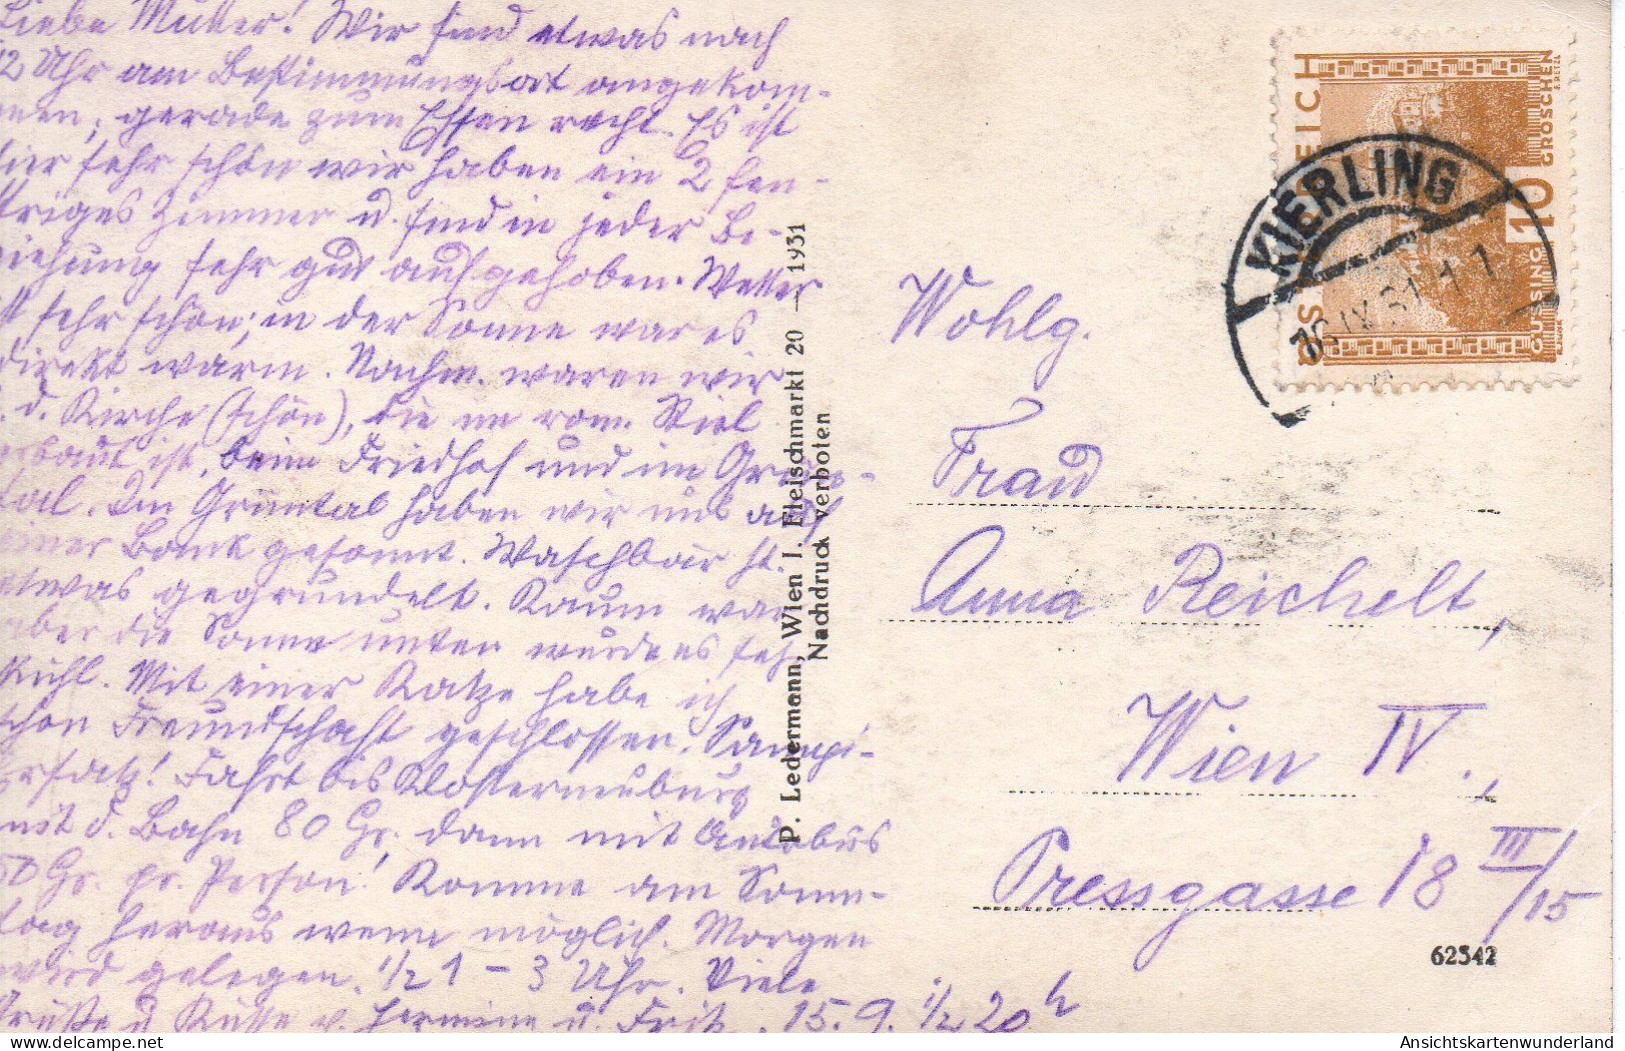 Liebe Mutter! Wir sind etwas nach
12 Uhr am Bestimmungsort angekom-
men, gerade zum Essen recht. Es ist
hier sehr schön wir haben ein 2 fen-
striges Zimmer u. sind in jeder Be-
ziehung sehr gut aufgehoben. Wetter
ist sehr schön; in der Sonne war es
direkt warm. Nachm. waren wir
i. d. Kirche (schön), die im rom. Stiel
erbaut ist, beim Friedhof und im Grün-
tal. Im Grüntal haben wir uns auf
einer Bank gesonnt. Waschbär ht.
etwas gegrundelt. Kaum war
aber die Sonne unten wurde es sehr
kühl. Mit einer Katze habe ich
schon Freundschaft geschlossen.
ersatz! Fahrt bis Klosterneuburg
mit d. Bahn 80 Gr. dann mit Autobus
50 Gr. pr. Person! Komme am Sonn-
tag heraus wenn möglich. Morgen
wird gelegen. 1/2 1 - 3 Uhr. Viele
Grüße u Küsse v. Hermine u. Fritz. 15.9. 1/2 20 h
P. Ledermann, Wien I. Fleischmarkt 20 — 1931
Nachdruck verboten
ÖSTERREICH
10 GROSCHEN
GÜSSING
KIERLING
16.IX.31
Wohlg.
Frau
Anna Reichelt,
Wien IV.,
Pressgasse 18 III/15
62342
AnsichtskartenWunderland